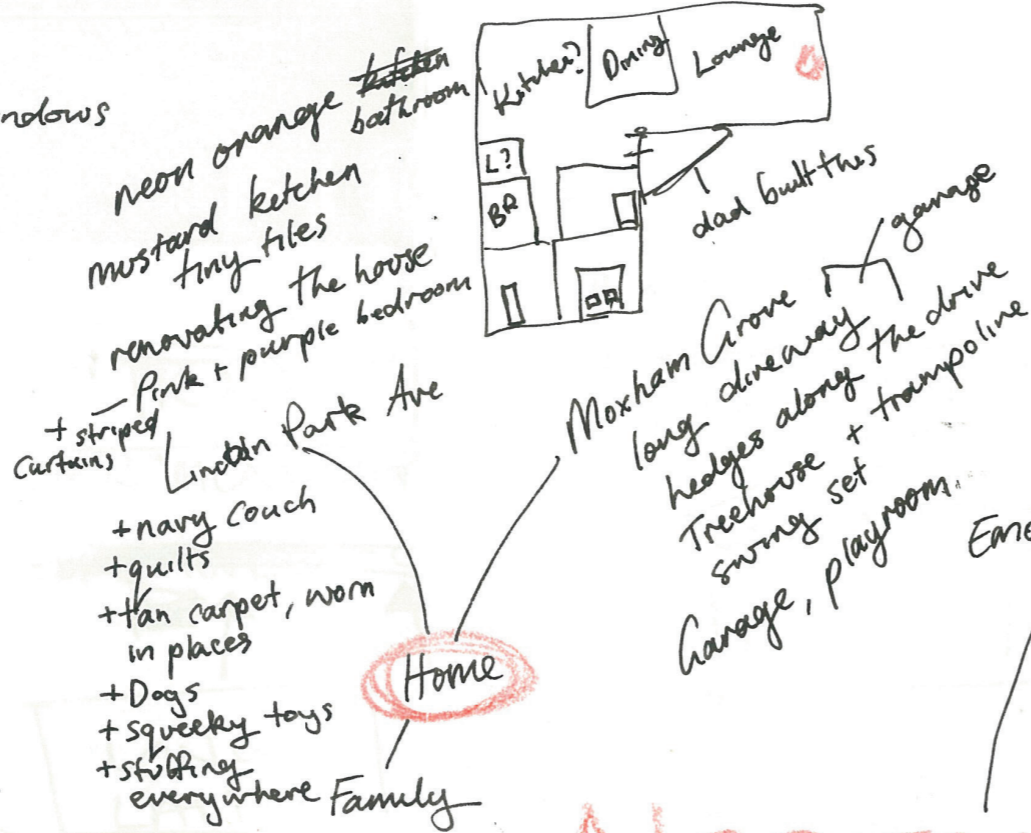 ndows
neon orange kitchen
bathroom
mustard ketchen
tiny tiles
renovating the house
Pink + purple bedroom
+ striped
curtains
Park Ave
+ navy couch
+ quilts
+ tan carpet, worn
in places
+ Dogs
+ squeeky toys
+ stuffing
everywhere
Kitchen?
Dining
Lounge
L?
BR
dad built this
garage
Moxham Grove
long diveway
hedges along the drive
Treehouse + trampoline
swing set
Garage, playroom.
Home
Family